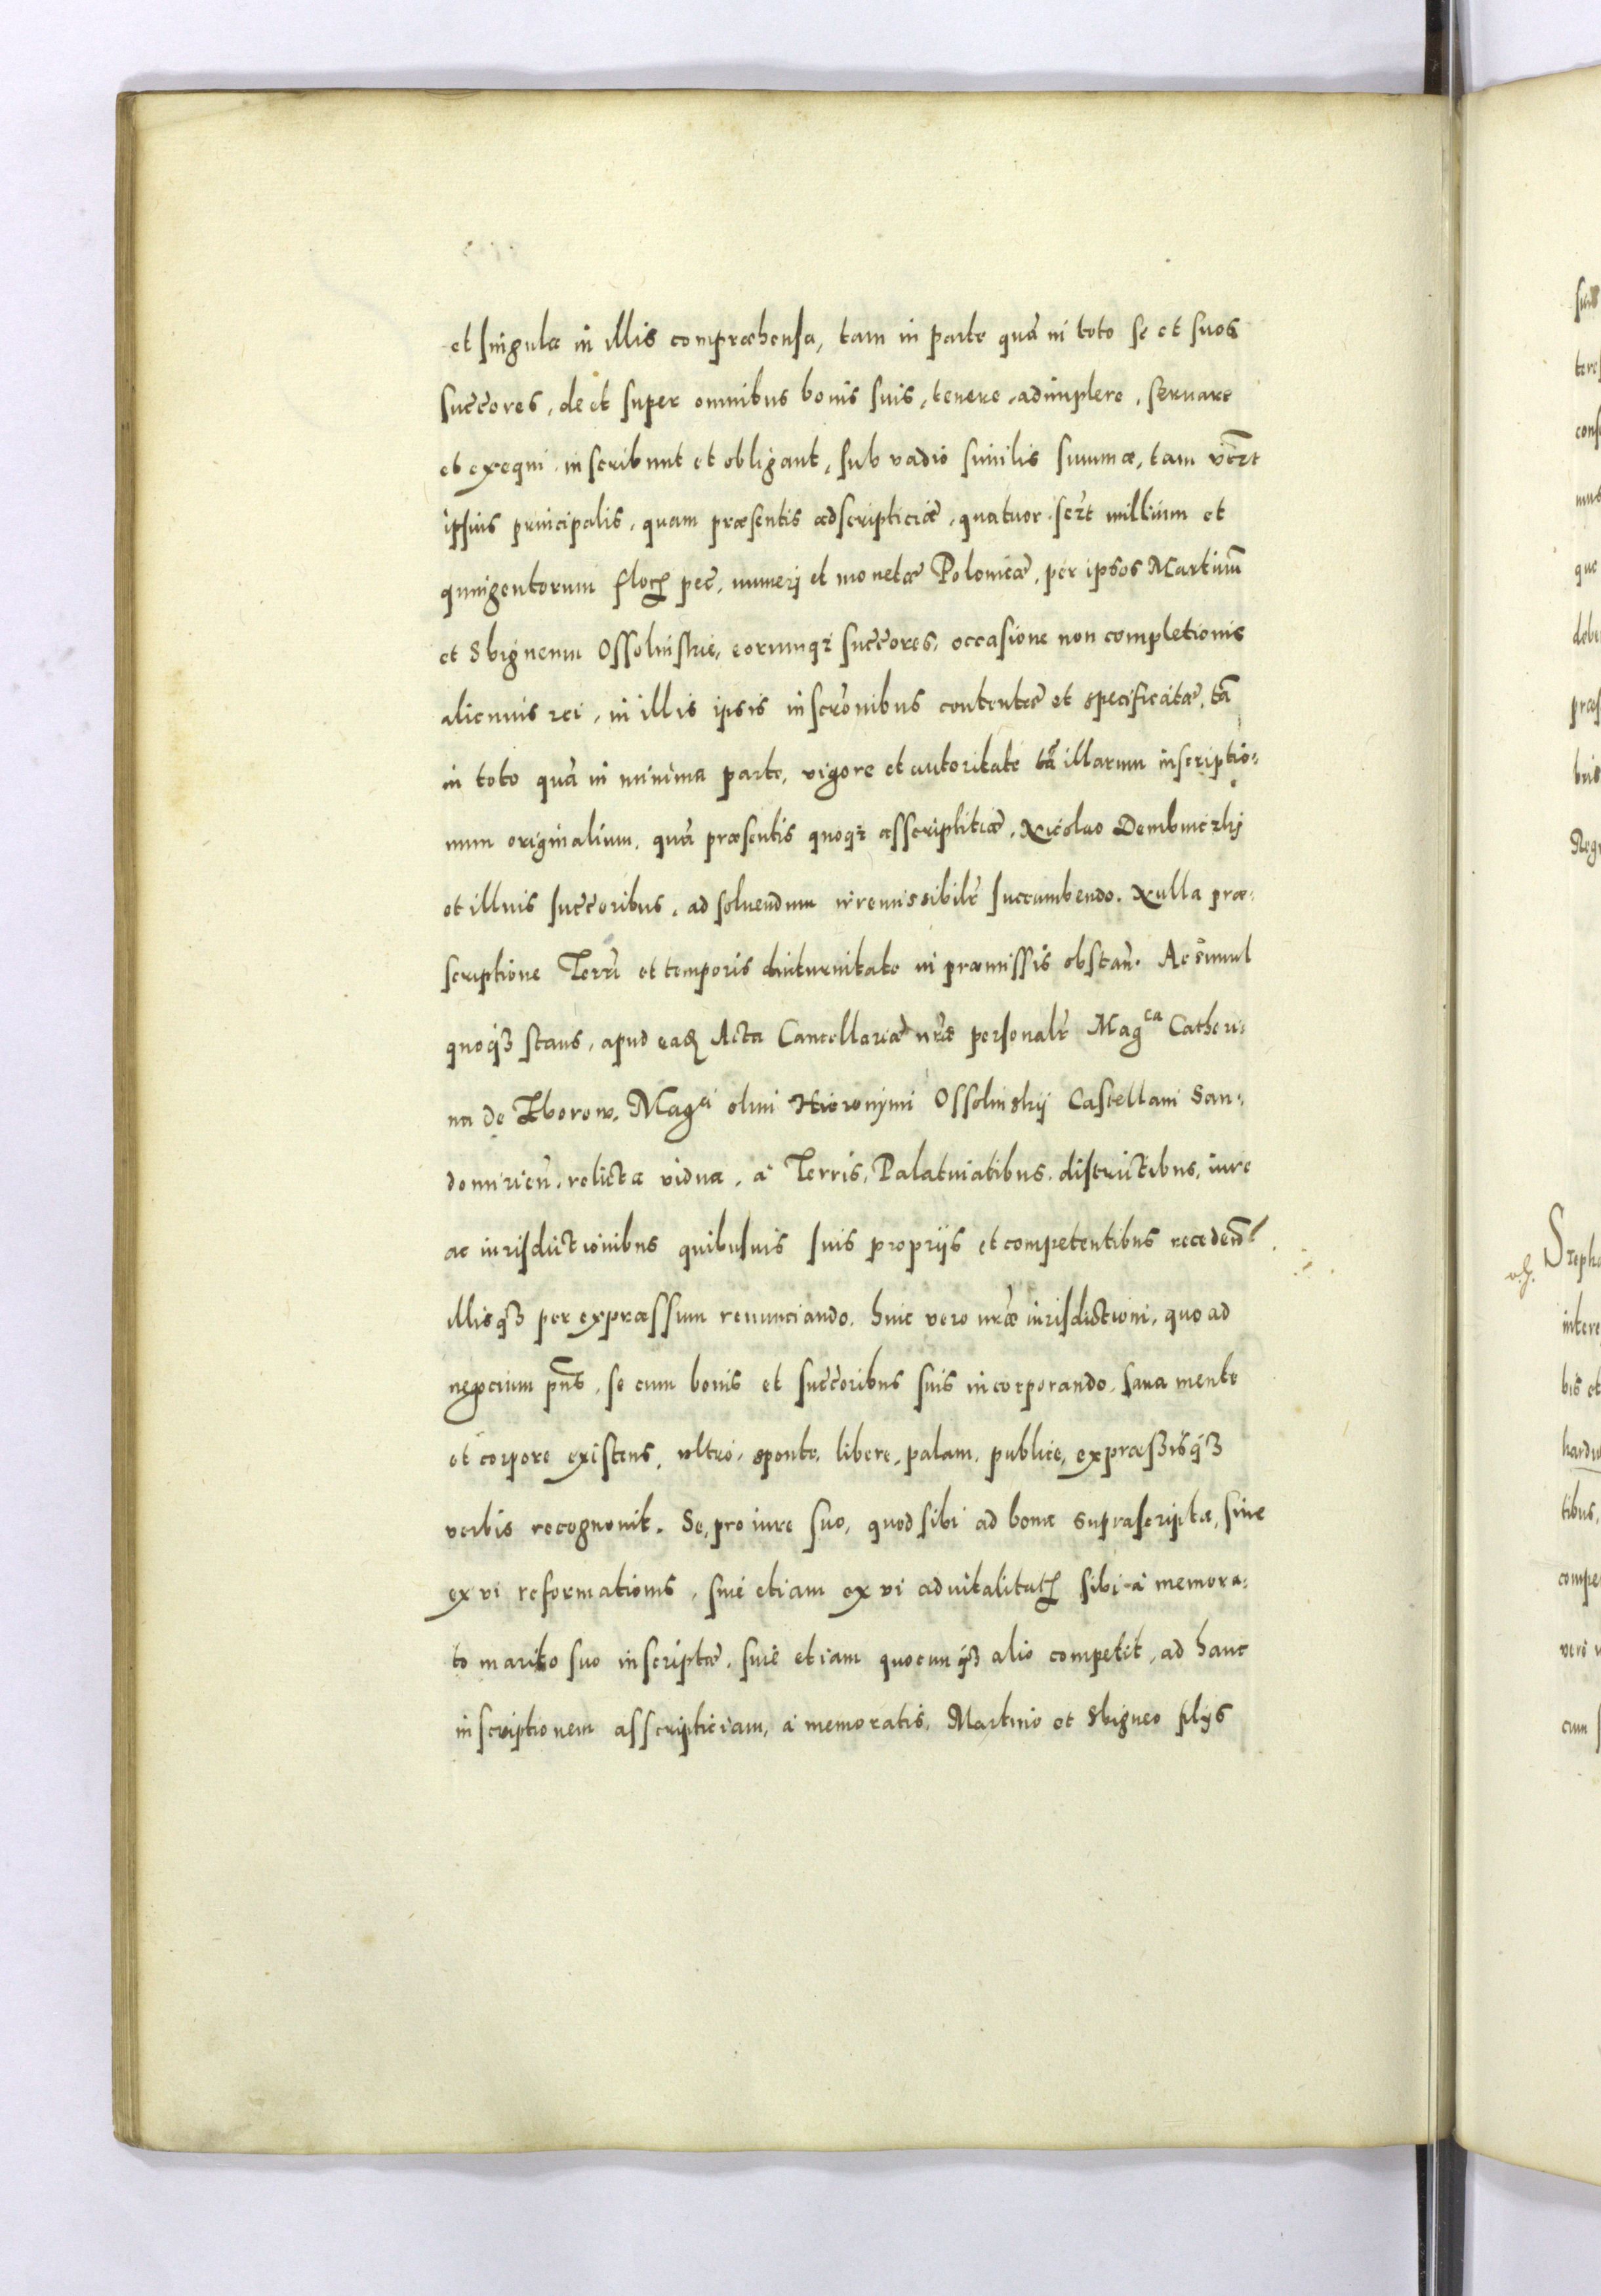 et singula in illis compraehensa, tam in parte quā in toto se et suos
succ̄ores, de et super omnibus bonis suis, tenere, adimplere, seruare
et exequi inscribunt et obligant, sub vadio similis summæ, tam
ipsius principalis, quam praesentis adscripticiæ, quatuor millium et
quingentorum pec̄, numeri et monetæ Polonicæ, per ipsos Martinū
et Sbigneum Ossolinskie, eorumq3 succ̄ores, occasione non completionis
alicuius rei, in illis ipsis inscrōnibus contentæ et specificatæ, tā
in toto quā in minima parte, vigore et autoritate tā illarum inscriptio-
num originalium, quā præsentis quoq3 asscriptitiæ, Nicolao Dembinczky
et illius succ̄oribus, ad soluendum irremissibilr̄ succumbendo. Nulla præ-
scriptione Terr̄ et temporis diuturnitate in præmissis obstan̄. Ac simul
quoq3 stans, apud Acta Cancellariæ nr̄æ personalr̄ Mag^ca Catheri-
na de Zborow, Mag^ci olim Hieronymi Ossolinskij Castellani San-
domirien̄. relicta vidua, à Terris, Palatinatibus, districtibus, iure
ac iurisdictionibus quibusuis suis proprijs et competentibus receden̄
illisq3 per expræssum renunciando. huic vero nr̄æ iurisdictioni, quo ad
negocium pn̄s, se cum bonis et succ̄oribus suis incorporando, sana mente
et corpore existens, ultrò, sponte, libere, palam, publice, expræssisq3
verbis recognouit. Se, pro iure suo, quod sibi ad bona suprascripta, siue
ex vi reformationis, siue etiam ex vi aduitalitat̄ sibi à memora-
to marito suo inscriptæ, siue etiam quocunq3 alio competit, ad hanc
inscriptionem asscripticiam, à memoratis, Martino et Sbigneo filijs